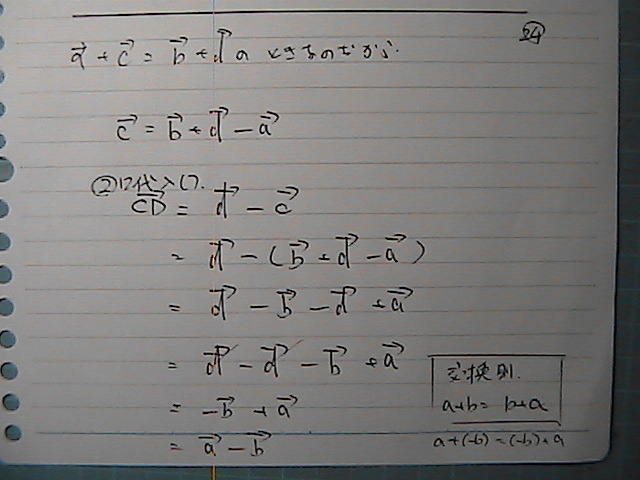 24
a⃗ + c⃗ = b⃗ + d⃗ の ときなのだから.
c⃗ = b⃗ + d⃗ − a⃗
②に代入して.
CD⃗ = d⃗ − c⃗
= d⃗ − (b⃗ + d⃗ − a⃗)
= d⃗ − b⃗ − d⃗ + a⃗
= d⃗ − d⃗ − b⃗ + a⃗
= −b⃗ + a⃗
= a⃗ − b⃗
交換則.
a+b = b+a
a+(-b) = (-b)+a